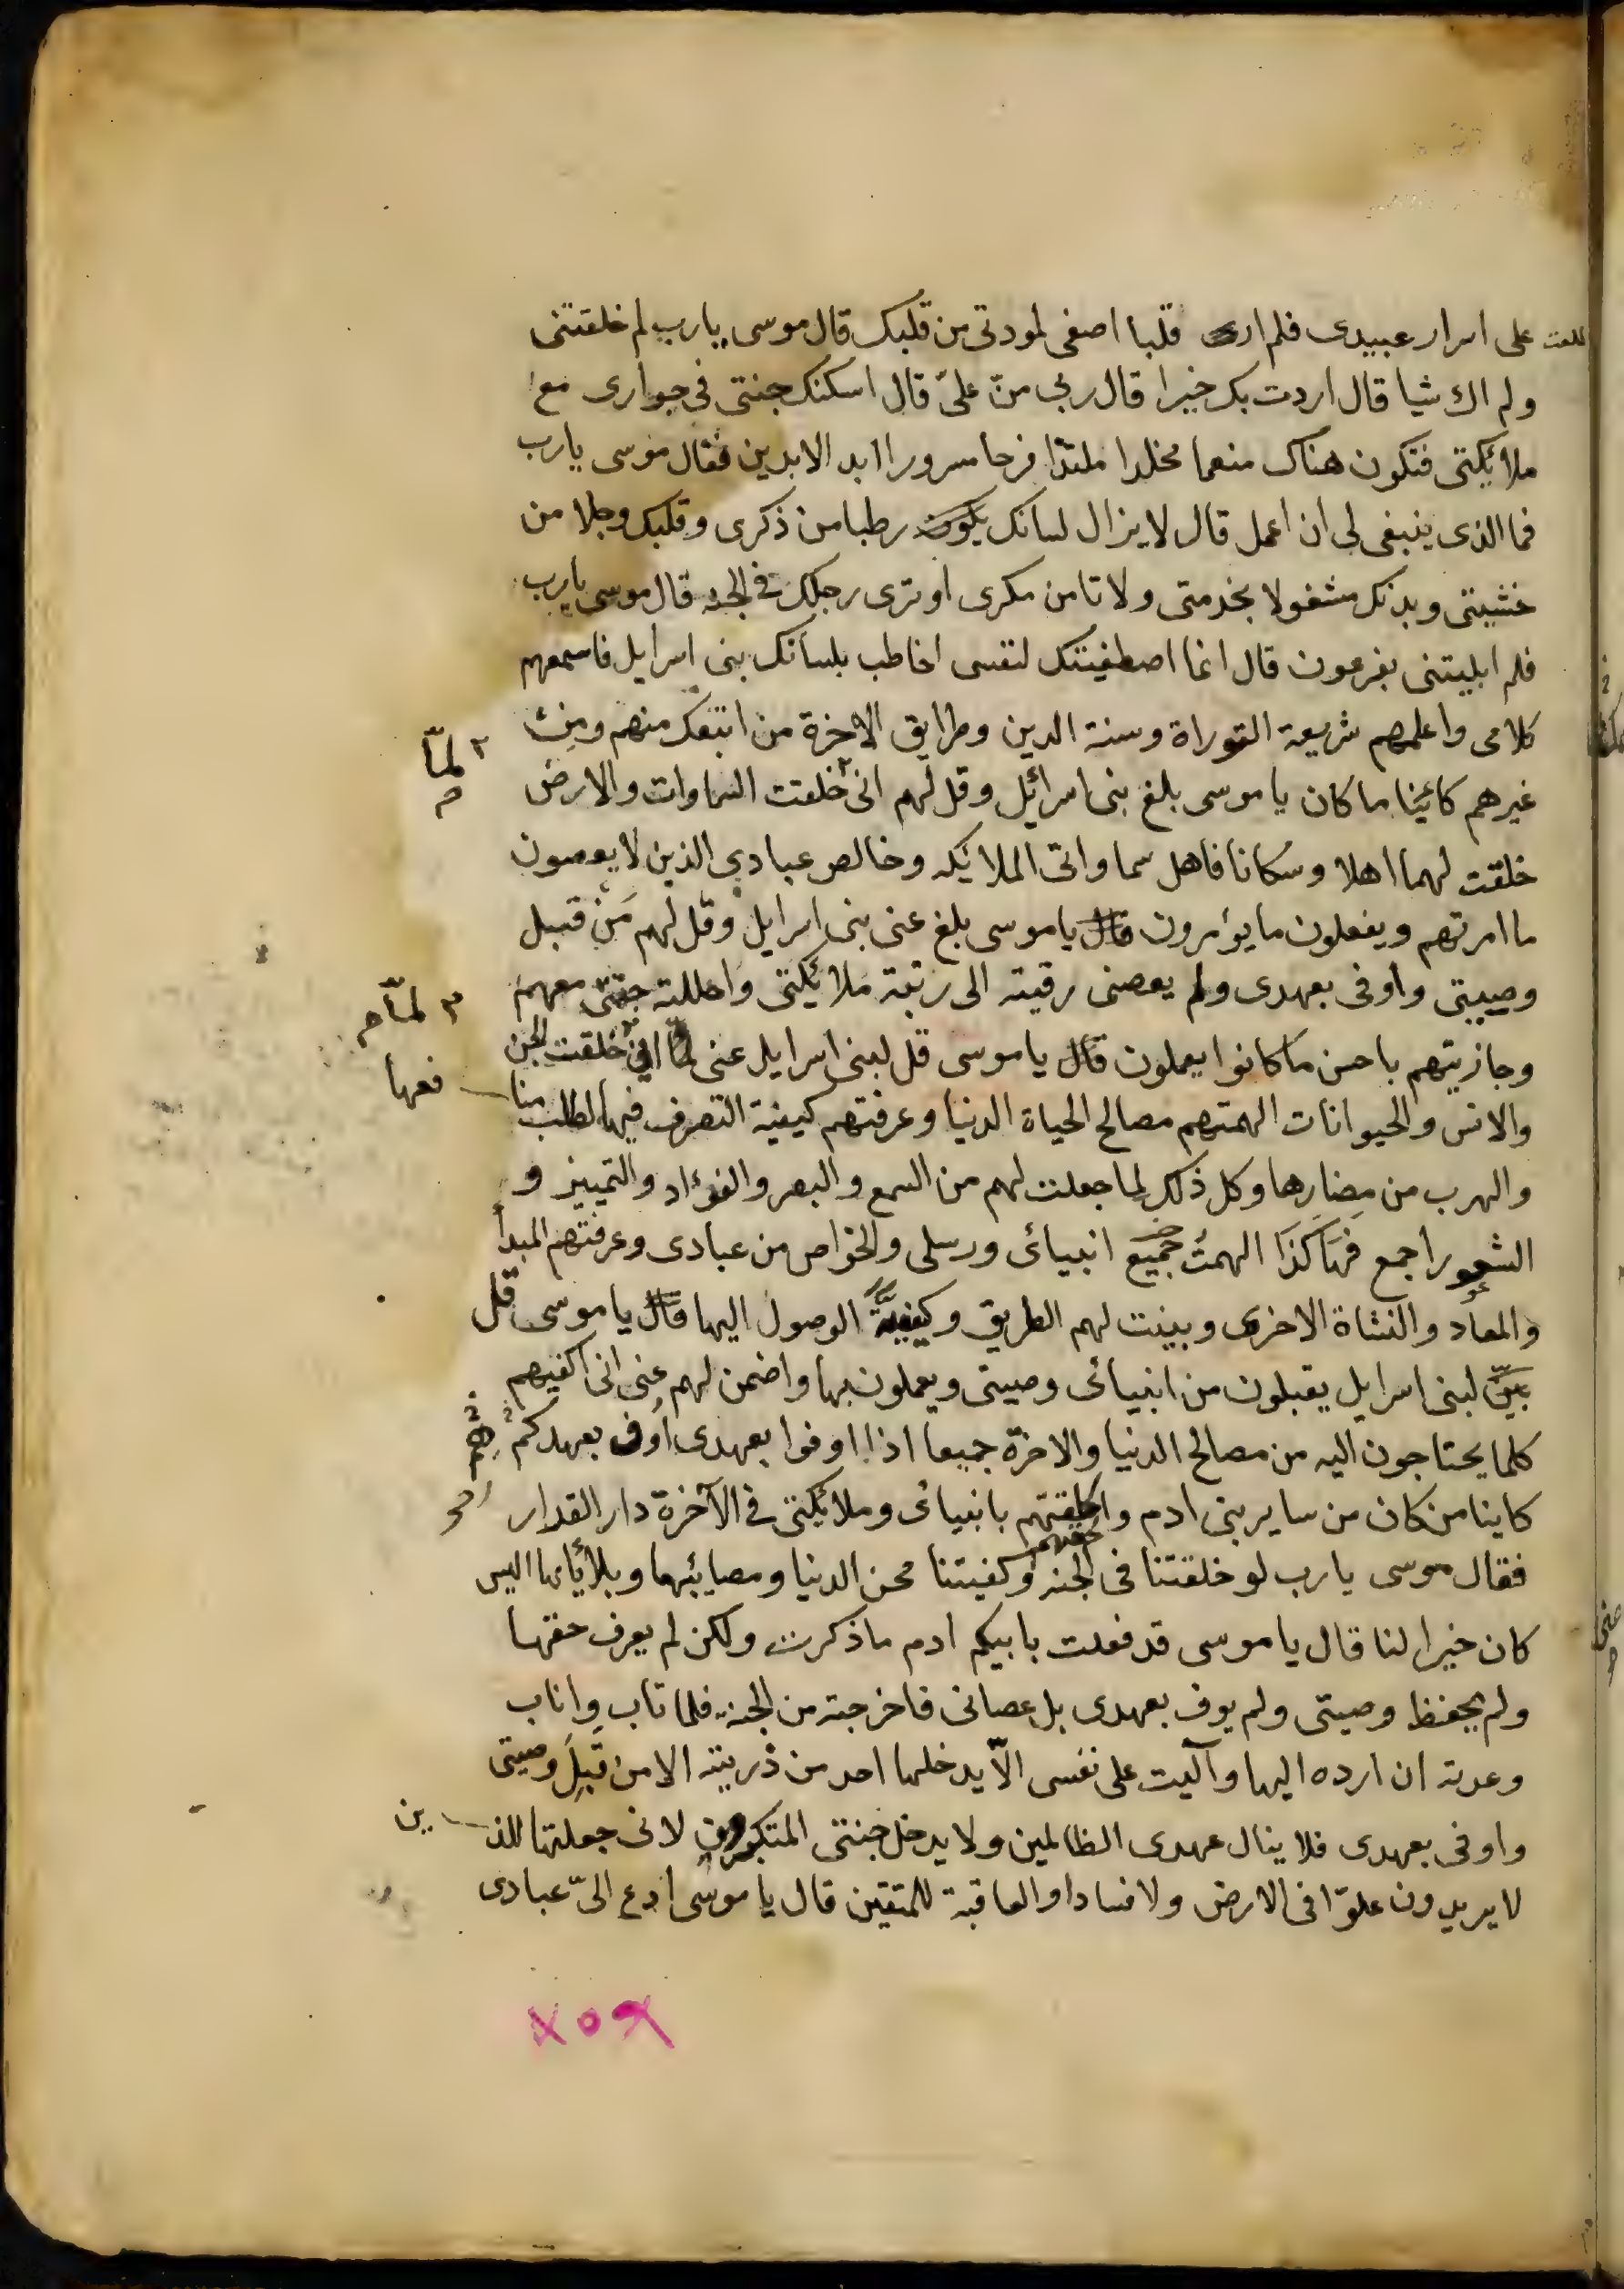 على اسرار عبيدى فلم ار قلبا اصفى لمودتى من قلبك قال موسى يا رب لم خلقتنى
ولم اك شيا قال اردت بك خيرا قال ربى منّ علىّ قال اسكنك جنتى فى جوارى مع
ملائكتى فتكون هناك منعما مخلدا ملتذا فرحا مسرورا ابد الابدين فقال موسى يا رب
فما الذى ينبغى لى ان اعمل قال لا يزال لسانك يكون رطبا من ذكرى وقلبك وجلا من
خشيتى وبدنك مشغولا بخدمتى ولا تامن مكرى او ترى رجلك فى الجنه قال موسى يا رب
فلم ابليتنى بفرعون قال انما اصطفيتك لنفسى اخاطب بلسانك بنى اسرايل فاسمعهم
كلامى واعلمهم شريعة التوراة وسنة الدين وطرايق الاخرة من اتبعك منهم ومن
غيرهم كائينا ما كان يا موسى بلغ بنى اسرائل وقل لهم انى خلقت السماوات والارض
٢ لمّا
خلقت لهما اهلا وسكانا فاهل سماواتى الملايكه وخالص عبادى الذين لا يعصون
ما امرتهم ويفعلون ما يؤمرون قال يا موسى بلغ عنى بنى اسرايل وقل لهم مَن قبل
وصيتى واوفى بعهدى ولم يعصنى رقيته الى رتبة ملائكتى واحللته جنتى معهم
٣ لمّا
وجازيتهم باحسن ما كانوا يعملون قال يا موسى قل لبنى اسرايل عنى انى خلقت الجن
والانس والحيوانات الهمتهم مصالح الحياة الدنيا وعرفتهم كيفية التصرف فيها لطلب منا
فعها
والهرب من مضارها وكل ذلك لما جعلت لهم من السمع والبصر والفؤاد والتمييز و
الشعور اجمع فهاكذا الهمتُ جميع انبيائى ورسلى والخواص من عبادى وعرفتهم المبدأ
والمعاد والنشاة الاخرى وبينت لهم الطريق وكيفيّة الوصول اليها قال يا موسى قل
لبنى اسرايل يقبلون من انبيائى وصيتى ويعملون بها واضمن لهم عنى انى اكفيهم
كلما يحتاجون اليه من مصالح الدنيا والاخرة جميعا اذا اوفوا بعهدى اوف بعهدكم
كاينا من كان من ساير بنى ادم والحقتهم بانبيائى وملائكتى فى الآخرة دار القرار
فقال موسى يا رب لو خلقتنا فى الجنه وكفيتنا محن الدنيا ومصايبها وبلائاها اليس
كان خيرا لنا قال يا موسى قد فعلت بابيكم ادم ما ذكرت ولكن لم يعرف حقها
ولم يحفظ وصيتى ولم يوف بعهدى بل عصانى فاخرجته من الجنه فلما تاب واناب
وعدته ان ارده اليها وآليت على نفسى الّا يدخلها احد من ذريته الا من قبل وصيتى
واوفى بعهدى فلا ينال عهدى الظالمين ولا يدخل جنتى المتكبرون لانى جعلتها للذ ين
لا يريدون علوّا فى الارض ولا فسادا والعاقبة للمتقين قال يا موسى ادع الىّ عبادى